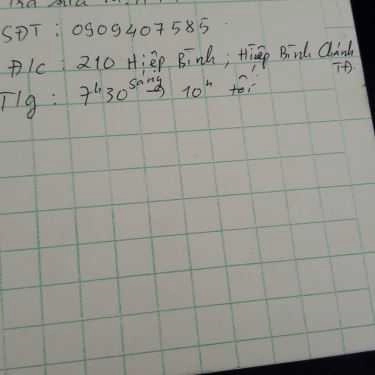 SĐT : 0909407585
Đ/c : 210 Hiệp Bình ; Hiệp Bình Chánh TĐ.
T/g : 7h30 sáng → 10h tối